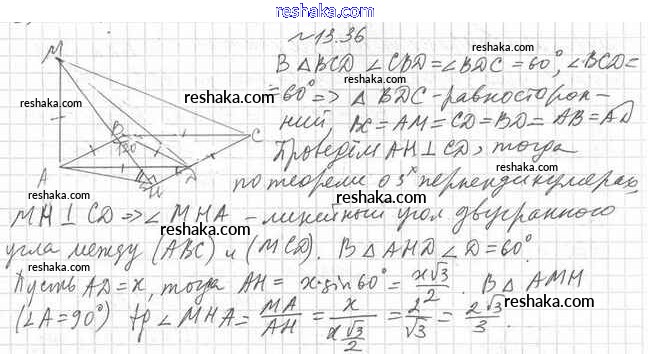 reshaka.com
№13.36
В △BCD ∠CBD=∠BDC=60°, ∠BCD=
=60° => △ BDC - равносторон-
ний, BC=AM=CD=BD=AB=AD
Проведём AH⊥CD, тогда
по теореме о 3х перпендикулярах
MH⊥CD => ∠MHA - линейный угол двугранного
угла между (ABC) и (MCD). В △AHD ∠D=60°.
Пусть AD=x, тогда AH= x·sin60°= x√3/2. В △AMH
(∠A=90°) tg ∠MHA= MA/AH = x/(x√3/2) = 2/√3 = 2√3/3.
M
B
120°
C
A
H
D
reshaka.com
reshaka.com
reshaka.com
reshaka.com
reshaka.com
reshaka.com
reshaka.com
reshaka.com
reshaka.com